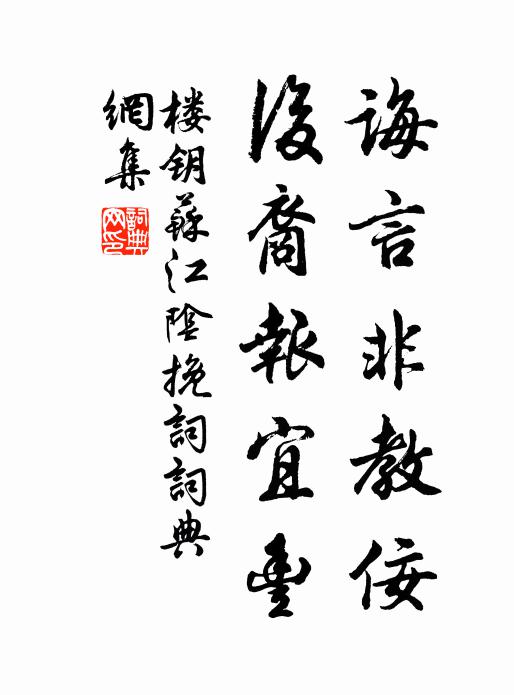 誨言非教佞
後裔報宜豐
楼钥蘇江陰挽詞詞典
網集
詞典
网印